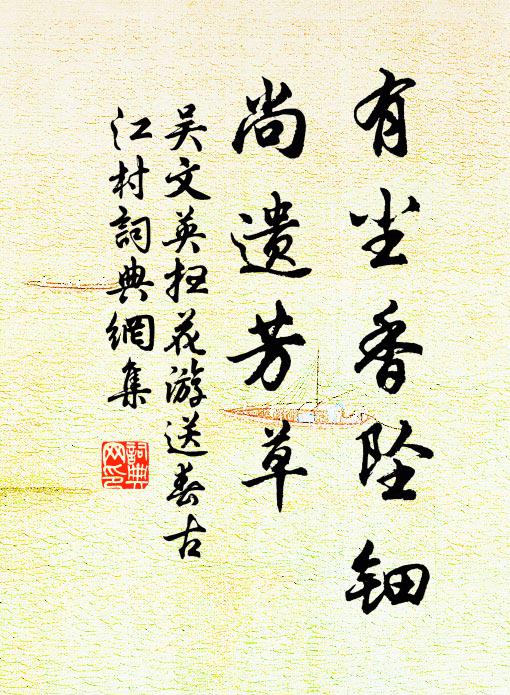 有尘香坠钿
尚遗芳草
吴文英扫花游送春古
江村詞典網集
詞典
网印